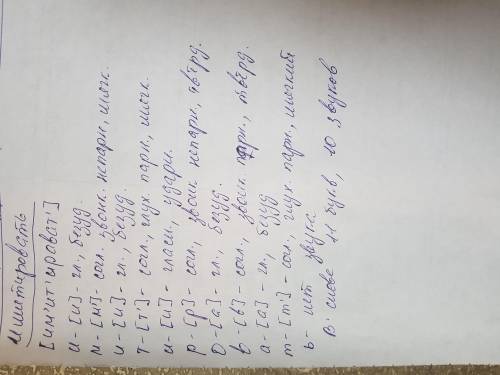 имитировать
[им'ит'ират']
и-[и]-гл., безуд.
м-[м']-согл. звонк. непарн., мягк.
и-[и]-гл., безуд.
т-[т']-согл., глух. парн., мягк.
и-[и]-гласн., ударн.
р-[р]-согл., звонк. непарн., твёрд.
о-[а]-гл., безуд.
в-[в]-согл., звонк. парн., твёрд.
а-[а]-гл., безуд
т-[т']-согл., глух. парн., мягкий
ь-нет звука
В слове 11 букв, 10 звуков